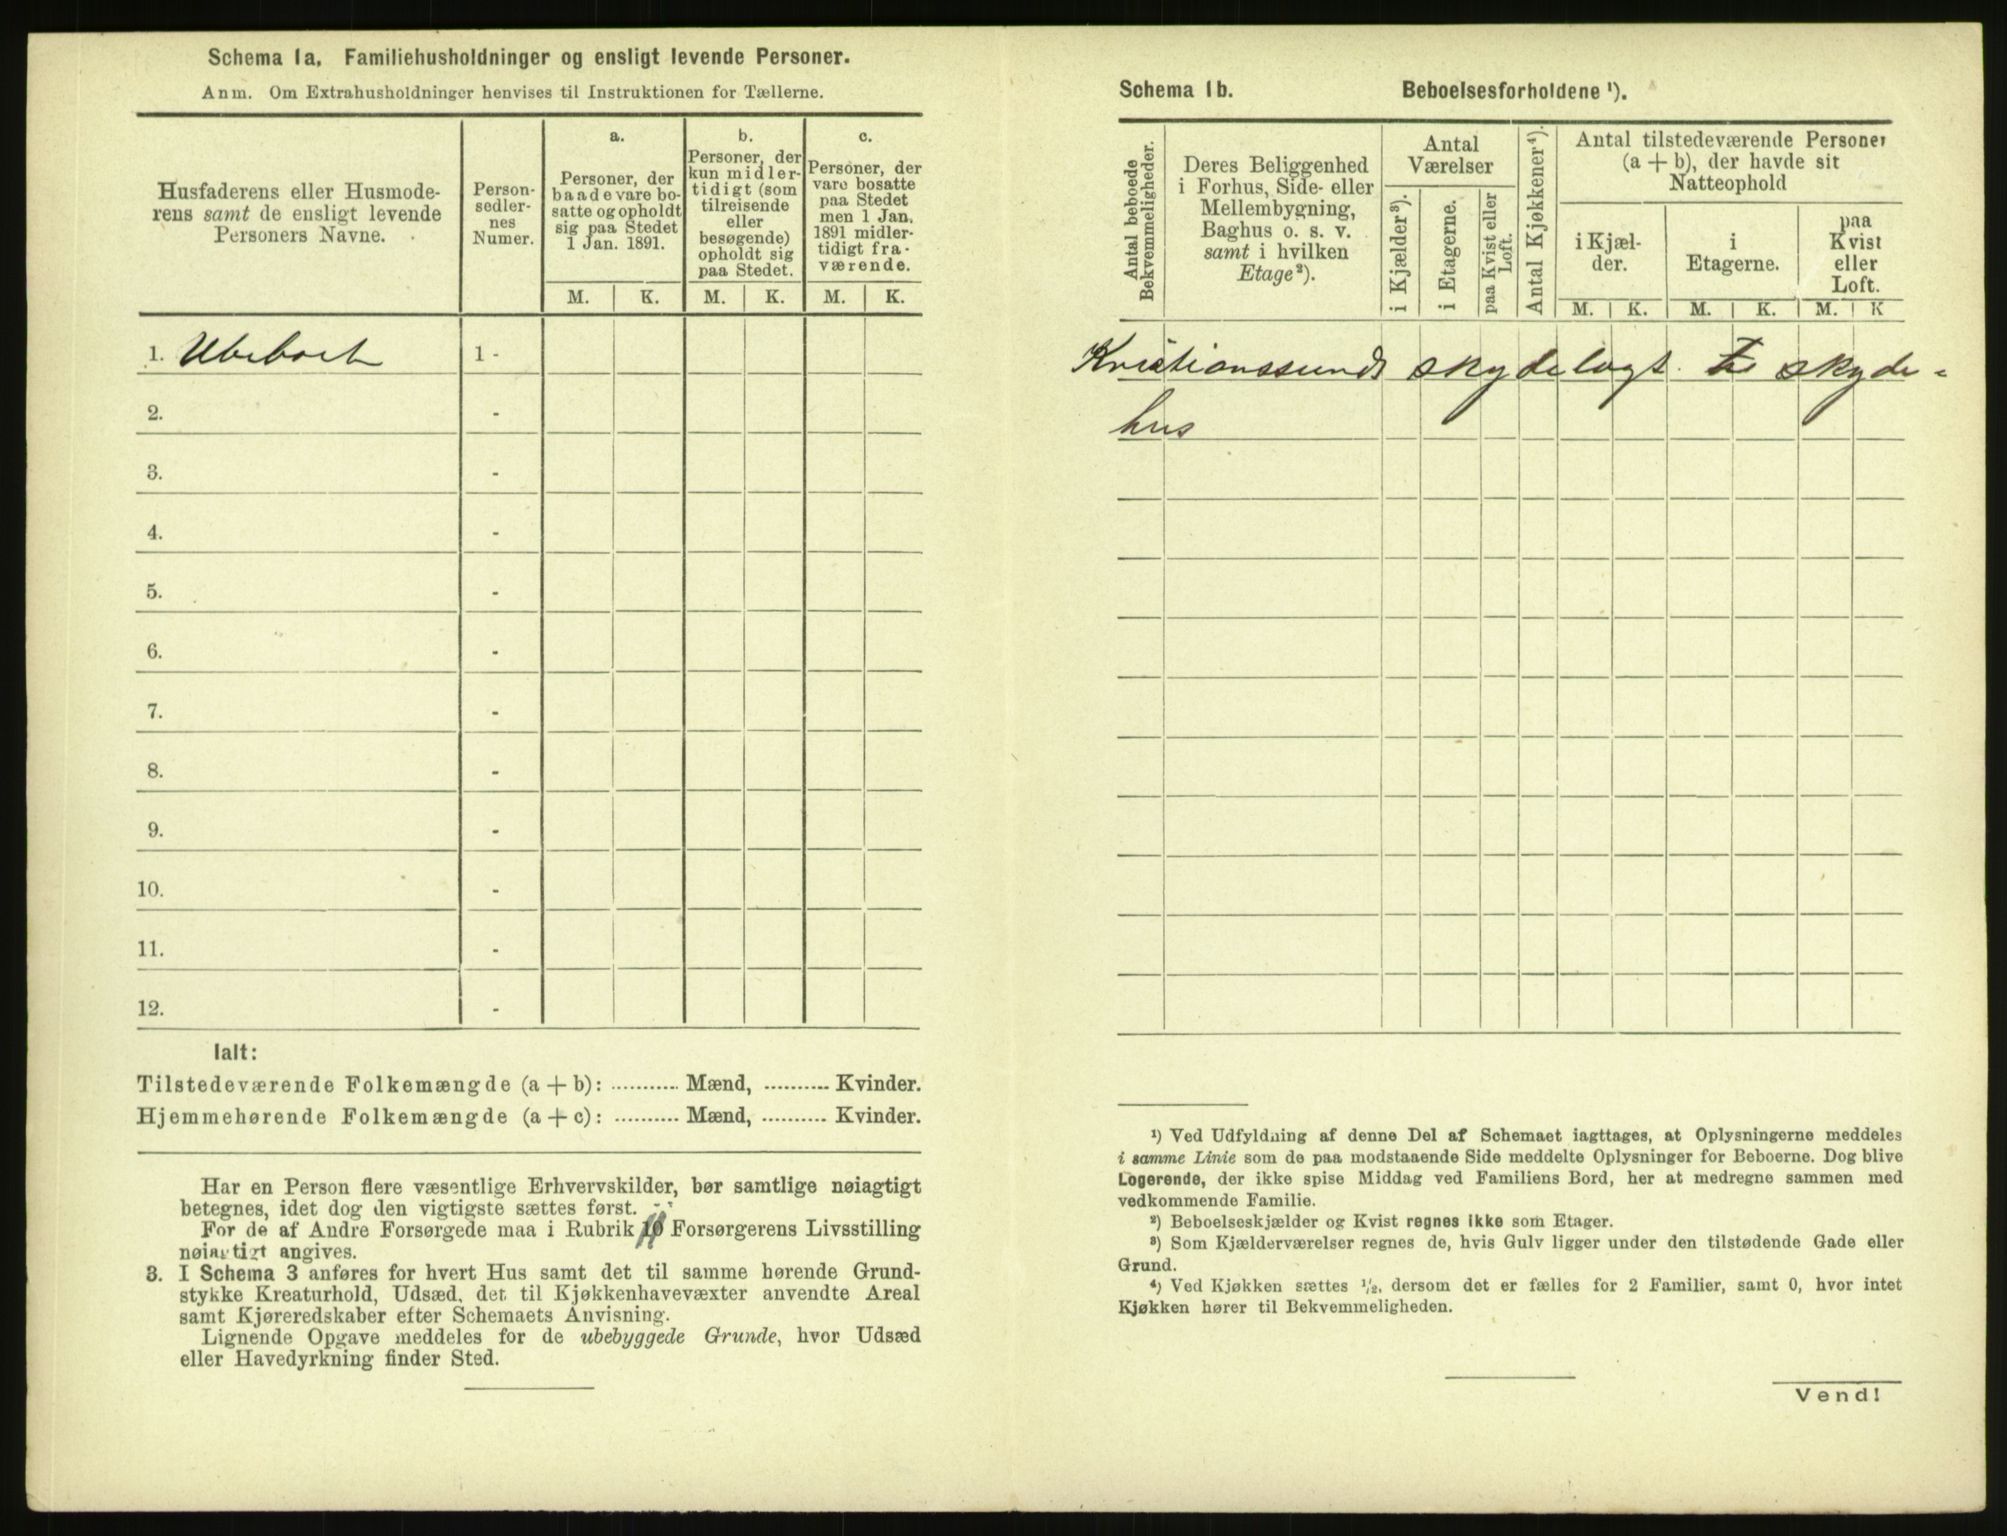 Schema 1a. Familiehusholdninger og ensligt levende Personer.
Anm. Om Extrahusholdninger henvises til Instruktionen for Tællerne.
Husfaderens eller Husmode-
rens samt de ensligt levende
Personers Navne.
Person-
sedler-
nes
Numer.
a.
Personer, der
baade vare bo-
satte og opholdt
sig paa Stedet
1 Jan. 1891.
b.
Personer, der
kun midler-
tidigt (som
tilreisende
eller
besøgende)
opholdt sig
paa Stedet.
c.
Personer, der
vare bosatte
paa Stedet
men 1 Jan.
1891 midler-
tidigt fra-
værende.
M. K. M. K. M. K.
1. Ubeboet 1 -
2. -
3. -
4. -
5. -
6. -
7. -
8. -
9. -
10. -
11. -
12. -
Ialt:
Tilstedeværende Folkemængde (a + b): ........... Mænd, ........... Kvinder.
Hjemmehørende Folkemængde (a + c): ........... Mænd, ........... Kvinder.
Har en Person flere væsentlige Erhvervskilder, bør samtlige nøiagtigt
betegnes, idet dog den vigtigste sættes først.
For de af Andre Forsørgede maa i Rubrik 10 Forsørgerens Livsstilling
nøiagtigt angives.
3. I Schema 3 anføres for hvert Hus samt det til samme hørende Grund-
stykke Kreaturhold, Udsæd, det til Kjøkkenhavevæxter anvendte Areal
samt Kjøreredskaber efter Schemaets Anvisning.
Lignende Opgave meddeles for de ubebyggede Grunde, hvor Udsæd
eller Havedyrkning finder Sted.
Schema 1b. Beboelsesforholdene ¹).
Antal beboede
Bekvemmeligheder.
Deres Beliggenhed
i Forhus, Side- eller
Mellembygning,
Baghus o. s. v.
samt i hvilken
Etage²).
Antal
Værelser
i Kjælder³).
i Etagerne.
paa Kvist eller
Loft.
Antal Kjøkkener⁴).
Antal tilstedeværende Personer
(a + b), der havde sit
Natteophold
i Kjæl-
der.
i
Etagerne.
paa
Kvist
eller
Loft.
M. K. M. K. M. K
Kristianssunds skydelagt. skyde-
hus
¹) Ved Udfyldning af denne Del af Schemaet iagttages, at Oplysningerne meddeles
i samme Linie som de paa modstaaende Side meddelte Oplysninger for Beboerne. Dog blive
Logerende, der ikke spise Middag ved Familiens Bord, her at medregne sammen med
vedkommende Familie.
²) Beboelseskjælder og Kvist regnes ikke som Etager.
³) Som Kjælderværelser regnes de, hvis Gulv ligger under den tilstødende Gade eller
Grund.
⁴) Ved Kjøkken sættes ¹/₂, dersom det er fælles for 2 Familier, samt 0, hvor intet
Kjøkken hører til Bekvemmeligheden.
Vend!